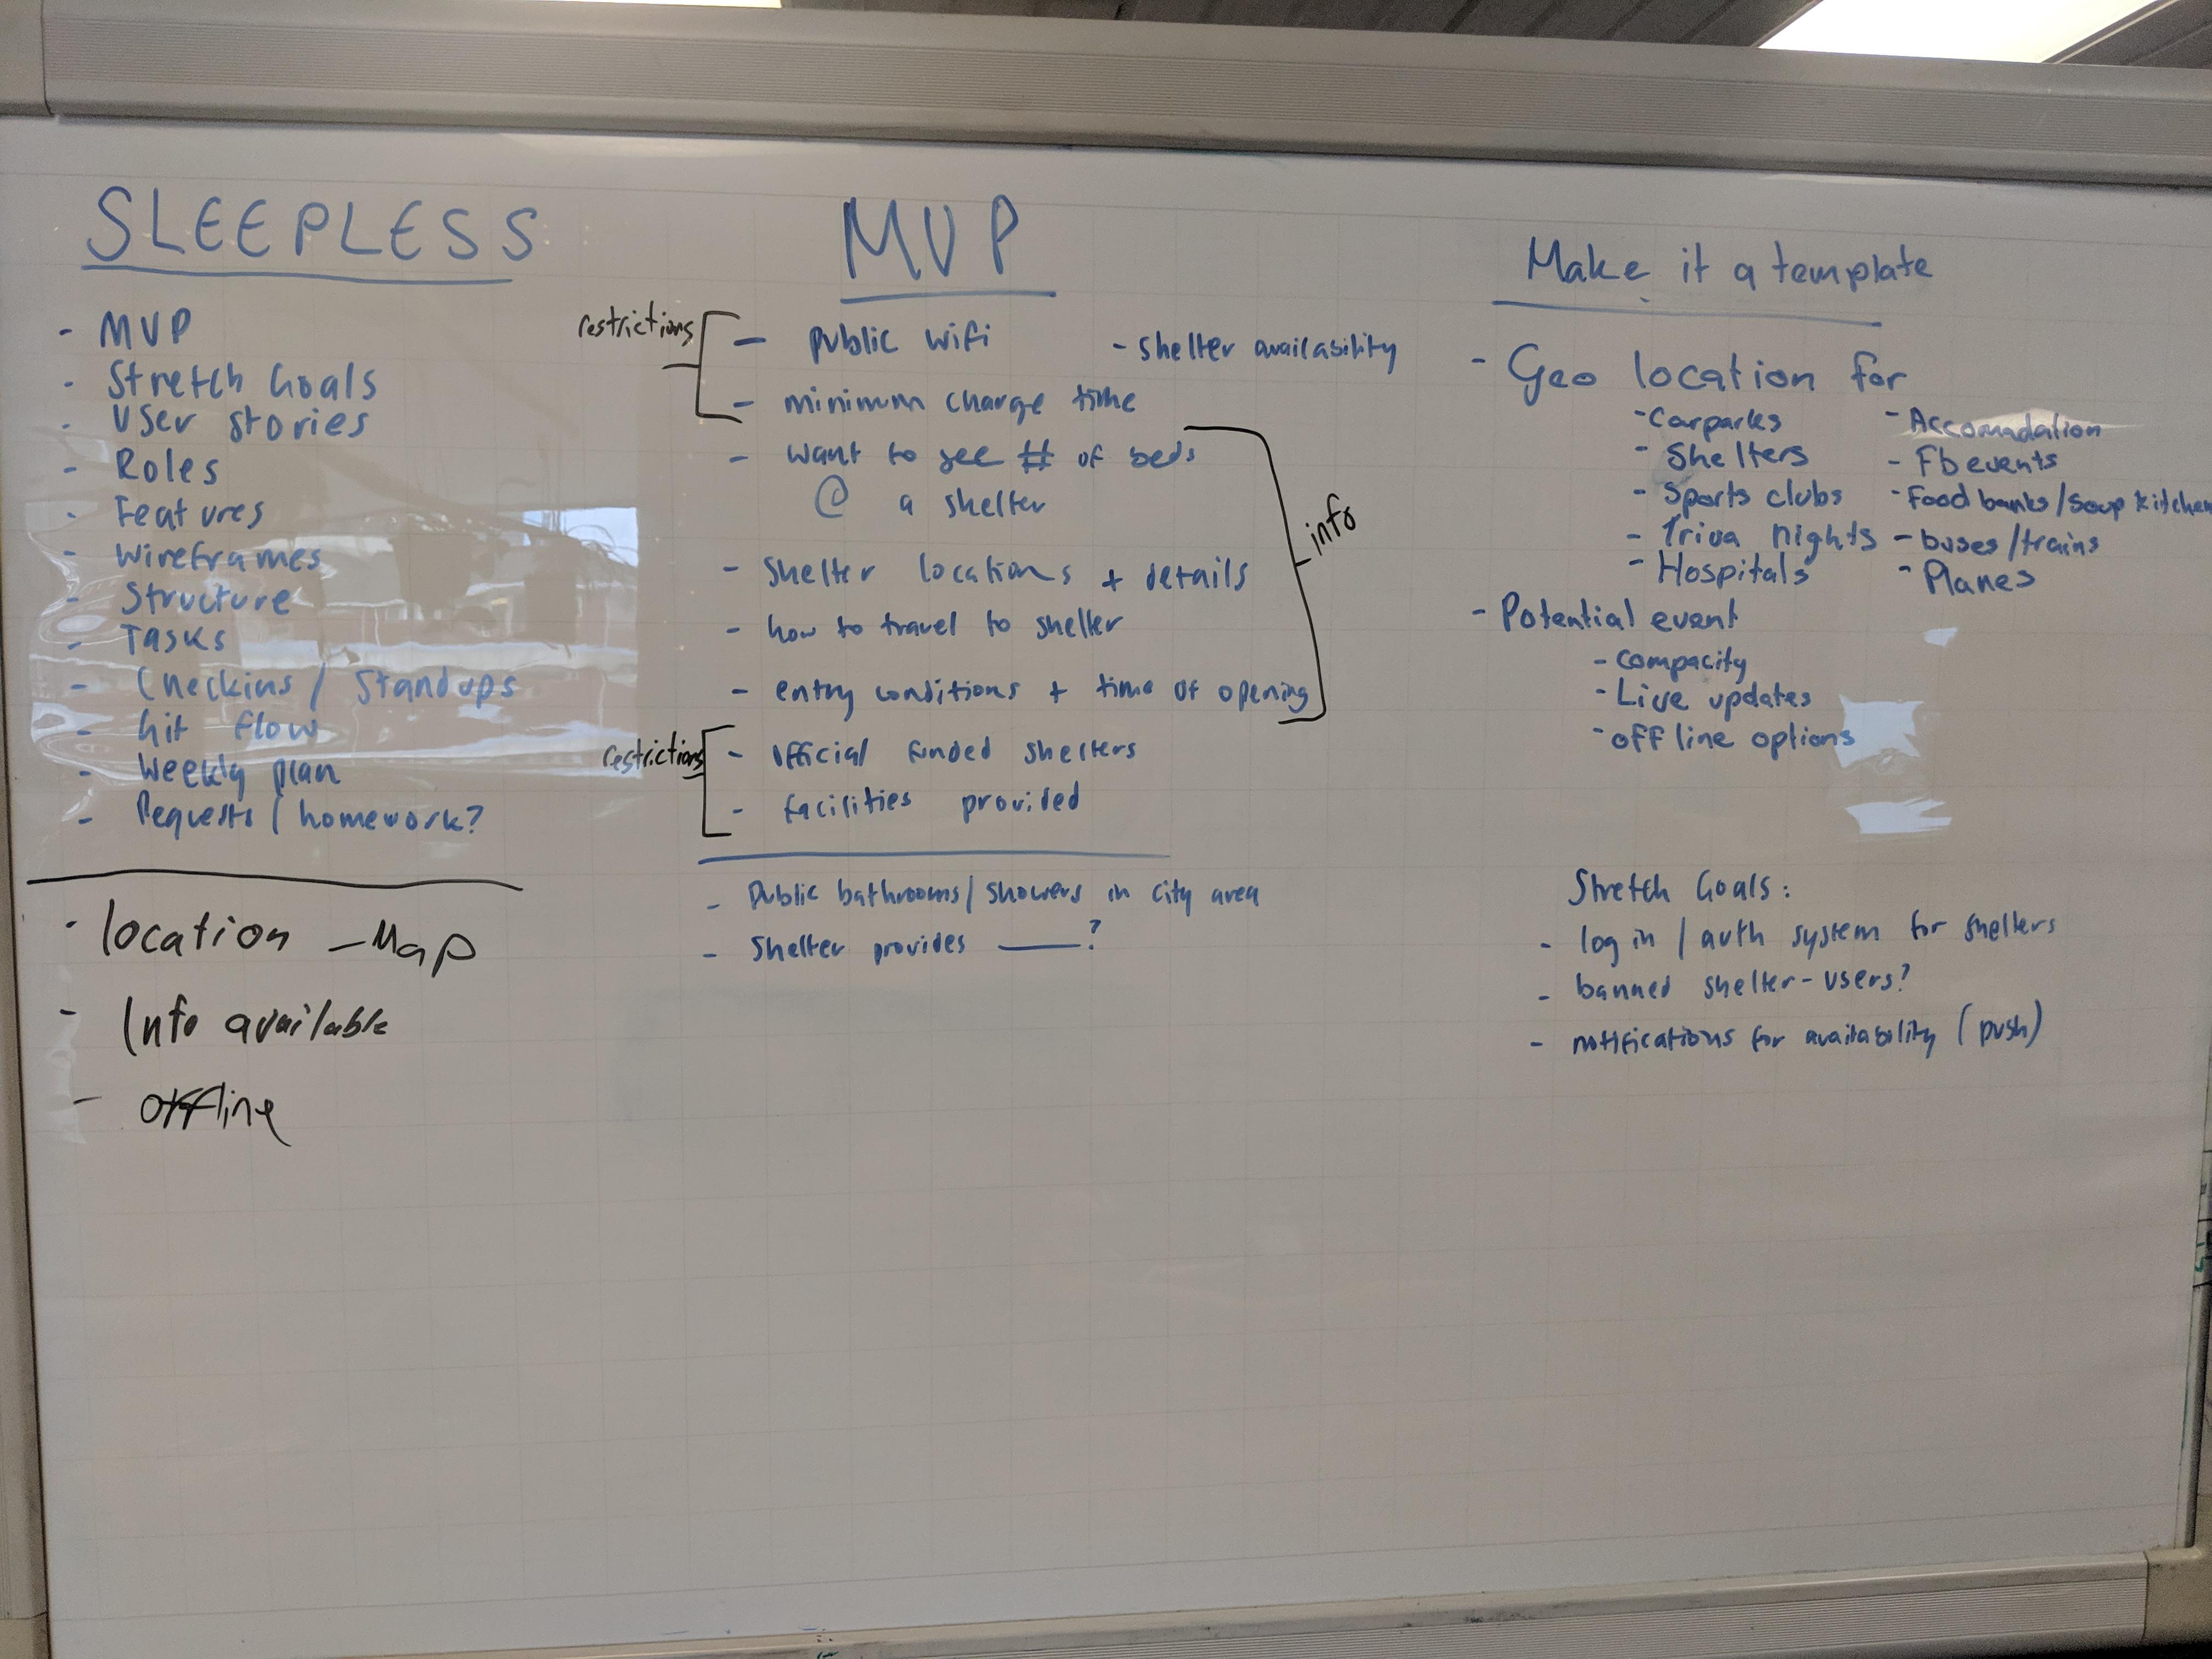 SLEEPLESS
- MVP
- Stretch Goals
- User stories
- Roles
- Features
- Wireframes
- Structure
- Tasks
- Checkins / Standups
- Git flow
- Weekly plan
- Requests / homework?
- location - Map
- Info available
- offline
MVP
restrictions
- public wifi
- shelter availability
- minimum charge time
- want to see # of beds
@ a shelter
- Shelter locations + details
- how to travel to shelter
- entry conditions + time of opening
info
restrictions
- official funded shelters
- facilities provided
- Public bathrooms / showers in city area
- Shelter provides ____?
Make it a template
- Geo location for
- Carparks
- Shelters
- Sports clubs
- Triva nights
- Hospitals
- Accomadation
- Fb events
- Food banks/Soup kitchen
- buses/trains
- Planes
- Potential event
- Compacity
- Live updates
- offline options
Stretch Goals:
- log in / auth system for shelters
- banned shelter-users?
- notifications for availability (push)